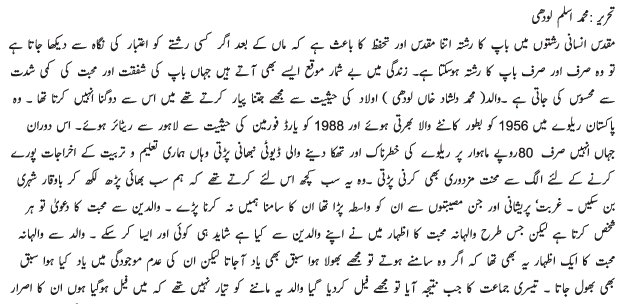 تحریر :محمد اسلم لودھی
مقدس انسانی رشتوں میں باپ کا رشتہ اتنا مقدس اور تحفظ کا باعث ہے کہ ماں کے بعد اگر کسی رشتے کو اعتبار کی نگاہ سے دیکھا جاتا ہے
تو وہ صرف اور صرف باپ کا رشتہ ہوسکتا ہے۔ زندگی میں بے شمار موقع ایسے بھی آتے ہیں جہاں باپ کی شفقت اور محبت کی کمی شدت
سے محسوس کی جاتی ہے ۔والد( محمد دلشاد خاں لودھی ) اولاد کی حیثیت سے مجھے جتنا پیار کرتے تھے میں اس سے دوگنا انہیں کرتا تھا ۔ وہ
پاکستان ریلوے میں 1956 کو بطور کانٹے والا بھرتی ہوئے اور 1988 کو یارڈ فورمین کی حیثیت سے لاہور سے ریٹائر ہوئے۔ اس دوران
جہاں انہیں صرف 80روپے ماہوار پر ریلوے کی خطرناک اور تھکا دینے والی ڈیوٹی نبھانی پڑتی وہاں ہماری تعلیم و تربیت کے اخراجات پورے
کرنے کے لئے الگ سے محنت مزدوری بھی کرنی پڑتی ۔وہ یہ سب کچھ اس لئے کرتے تھے کہ ہم سب بھائی پڑھ لکھ کر باوقار شہری
بن سکیں ۔ غربت‘ پریشانی اور جن مصیبتوں سے ان کو واسطہ پڑا تھا ان کا سامنا ہمیں نہ کرنا پڑے ۔ والدین سے محبت کا دعویٰ تو ہر
شخص کرتا ہے لیکن جس طرح والہانہ محبت کا اظہار میں نے اپنے والدین سے کیا ہے شاید ہی کوئی اور ایسا کر سکے ۔ والد سے والہانہ
محبت کا ایک اظہار یہ بھی تھا کہ اگر وہ سامنے ہوتے تو مجھے بھولا ہوا سبق بھی یاد آجاتا لیکن ان کی عدم موجودگی میں یاد کیا ہوا سبق
بھی بھول جاتا ۔ تیسری جماعت کا جب نتیجہ آیا تو مجھے فیل کردیا گیا والد یہ ماننے کو تیار نہیں تھے کہ میں فیل ہوگیا ہوں ان کا اصرار